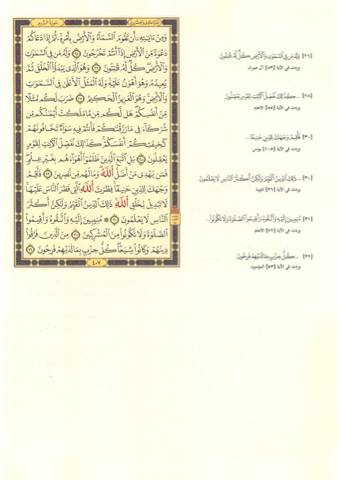 سورة الروم
وَمِنْ ءَايَٰتِهِۦٓ أَن تَقُومَ ٱلسَّمَآءُ وَٱلْأَرْضُ بِأَمْرِهِۦ ثُمَّ إِذَا دَعَاكُمْ
دَعْوَةً مِّنَ ٱلْأَرْضِ إِذَآ أَنتُمْ تَخْرُجُونَ ۝٢٥ وَلَهُۥ مَن فِى ٱلسَّمَٰوَٰتِ
وَٱلْأَرْضِ كُلٌّ لَّهُۥ قَٰنِتُونَ ۝٢٦ وَهُوَ ٱلَّذِى يَبْدَؤُا۟ ٱلْخَلْقَ ثُمَّ
يُعِيدُهُۥ وَهُوَ أَهْوَنُ عَلَيْهِ وَلَهُ ٱلْمَثَلُ ٱلْأَعْلَىٰ فِى ٱلسَّمَٰوَٰتِ
وَٱلْأَرْضِ وَهُوَ ٱلْعَزِيزُ ٱلْحَكِيمُ ۝٢٧ ضَرَبَ لَكُم مَّثَلًا
مِّنْ أَنفُسِكُمْ هَل لَّكُم مِّن مَّا مَلَكَتْ أَيْمَٰنُكُم مِّن
شُرَكَآءَ فِى مَا رَزَقْنَٰكُمْ فَأَنتُمْ فِيهِ سَوَآءٌ تَخَافُونَهُمْ
كَخِيفَتِكُمْ أَنفُسَكُمْ كَذَٰلِكَ نُفَصِّلُ ٱلْءَايَٰتِ لِقَوْمٍ
يَعْقِلُونَ ۝٢٨ بَلِ ٱتَّبَعَ ٱلَّذِينَ ظَلَمُوٓا۟ أَهْوَآءَهُم بِغَيْرِ عِلْمٍ
فَمَن يَهْدِى مَنْ أَضَلَّ ٱللَّهُ وَمَا لَهُم مِّن نَّٰصِرِينَ ۝٢٩ فَأَقِمْ
وَجْهَكَ لِلدِّينِ حَنِيفًا فِطْرَتَ ٱللَّهِ ٱلَّتِى فَطَرَ ٱلنَّاسَ عَلَيْهَا
لَا تَبْدِيلَ لِخَلْقِ ٱللَّهِ ذَٰلِكَ ٱلدِّينُ ٱلْقَيِّمُ وَلَٰكِنَّ أَكْثَرَ
ٱلنَّاسِ لَا يَعْلَمُونَ ۝٣٠ مُنِيبِينَ إِلَيْهِ وَٱتَّقُوهُ وَأَقِيمُوا۟
ٱلصَّلَوٰةَ وَلَا تَكُونُوا۟ مِنَ ٱلْمُشْرِكِينَ ۝٣١ مِنَ ٱلَّذِينَ فَرَّقُوا۟
دِينَهُمْ وَكَانُوا۟ شِيَعًا كُلُّ حِزْبٍۭ بِمَا لَدَيْهِمْ فَرِحُونَ ۝٣٢
٤٠٧
[٢٦] وَلَهُۥ مَن فِى ٱلسَّمَٰوَٰتِ وَٱلْأَرْضِ كُلٌّ لَّهُۥ قَٰنِتُونَ
[٢٨] ...كَذَٰلِكَ نُفَصِّلُ ٱلْءَايَٰتِ لِقَوْمٍ يَعْقِلُونَ
[٣٠] فَأَقِمْ وَجْهَكَ لِلدِّينِ حَنِيفًا...
وردت في الآية [١٠٥] يونس
[٣٠] ...ذَٰلِكَ ٱلدِّينُ ٱلْقَيِّمُ وَلَٰكِنَّ أَكْثَرَ ٱلنَّاسِ لَا يَعْلَمُونَ
[٣١] مُنِيبِينَ إِلَيْهِ وَٱتَّقُوهُ وَأَقِيمُوا۟ ٱلصَّلَوٰةَ وَلَا تَكُونُوا۟...
[٣٢] ...كُلُّ حِزْبٍۭ بِمَا لَدَيْهِمْ فَرِحُونَ
وردت في الآية [٥٣] المؤمنون